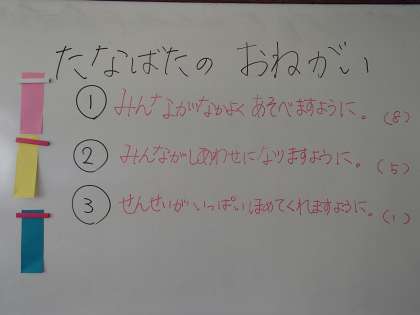 たなばたの おねがい
① みんながなかよく あそべますように。(8)
② みんながしあわせになりますように。(5)
③ せんせいがいっぱいほめてくれますように。(1)